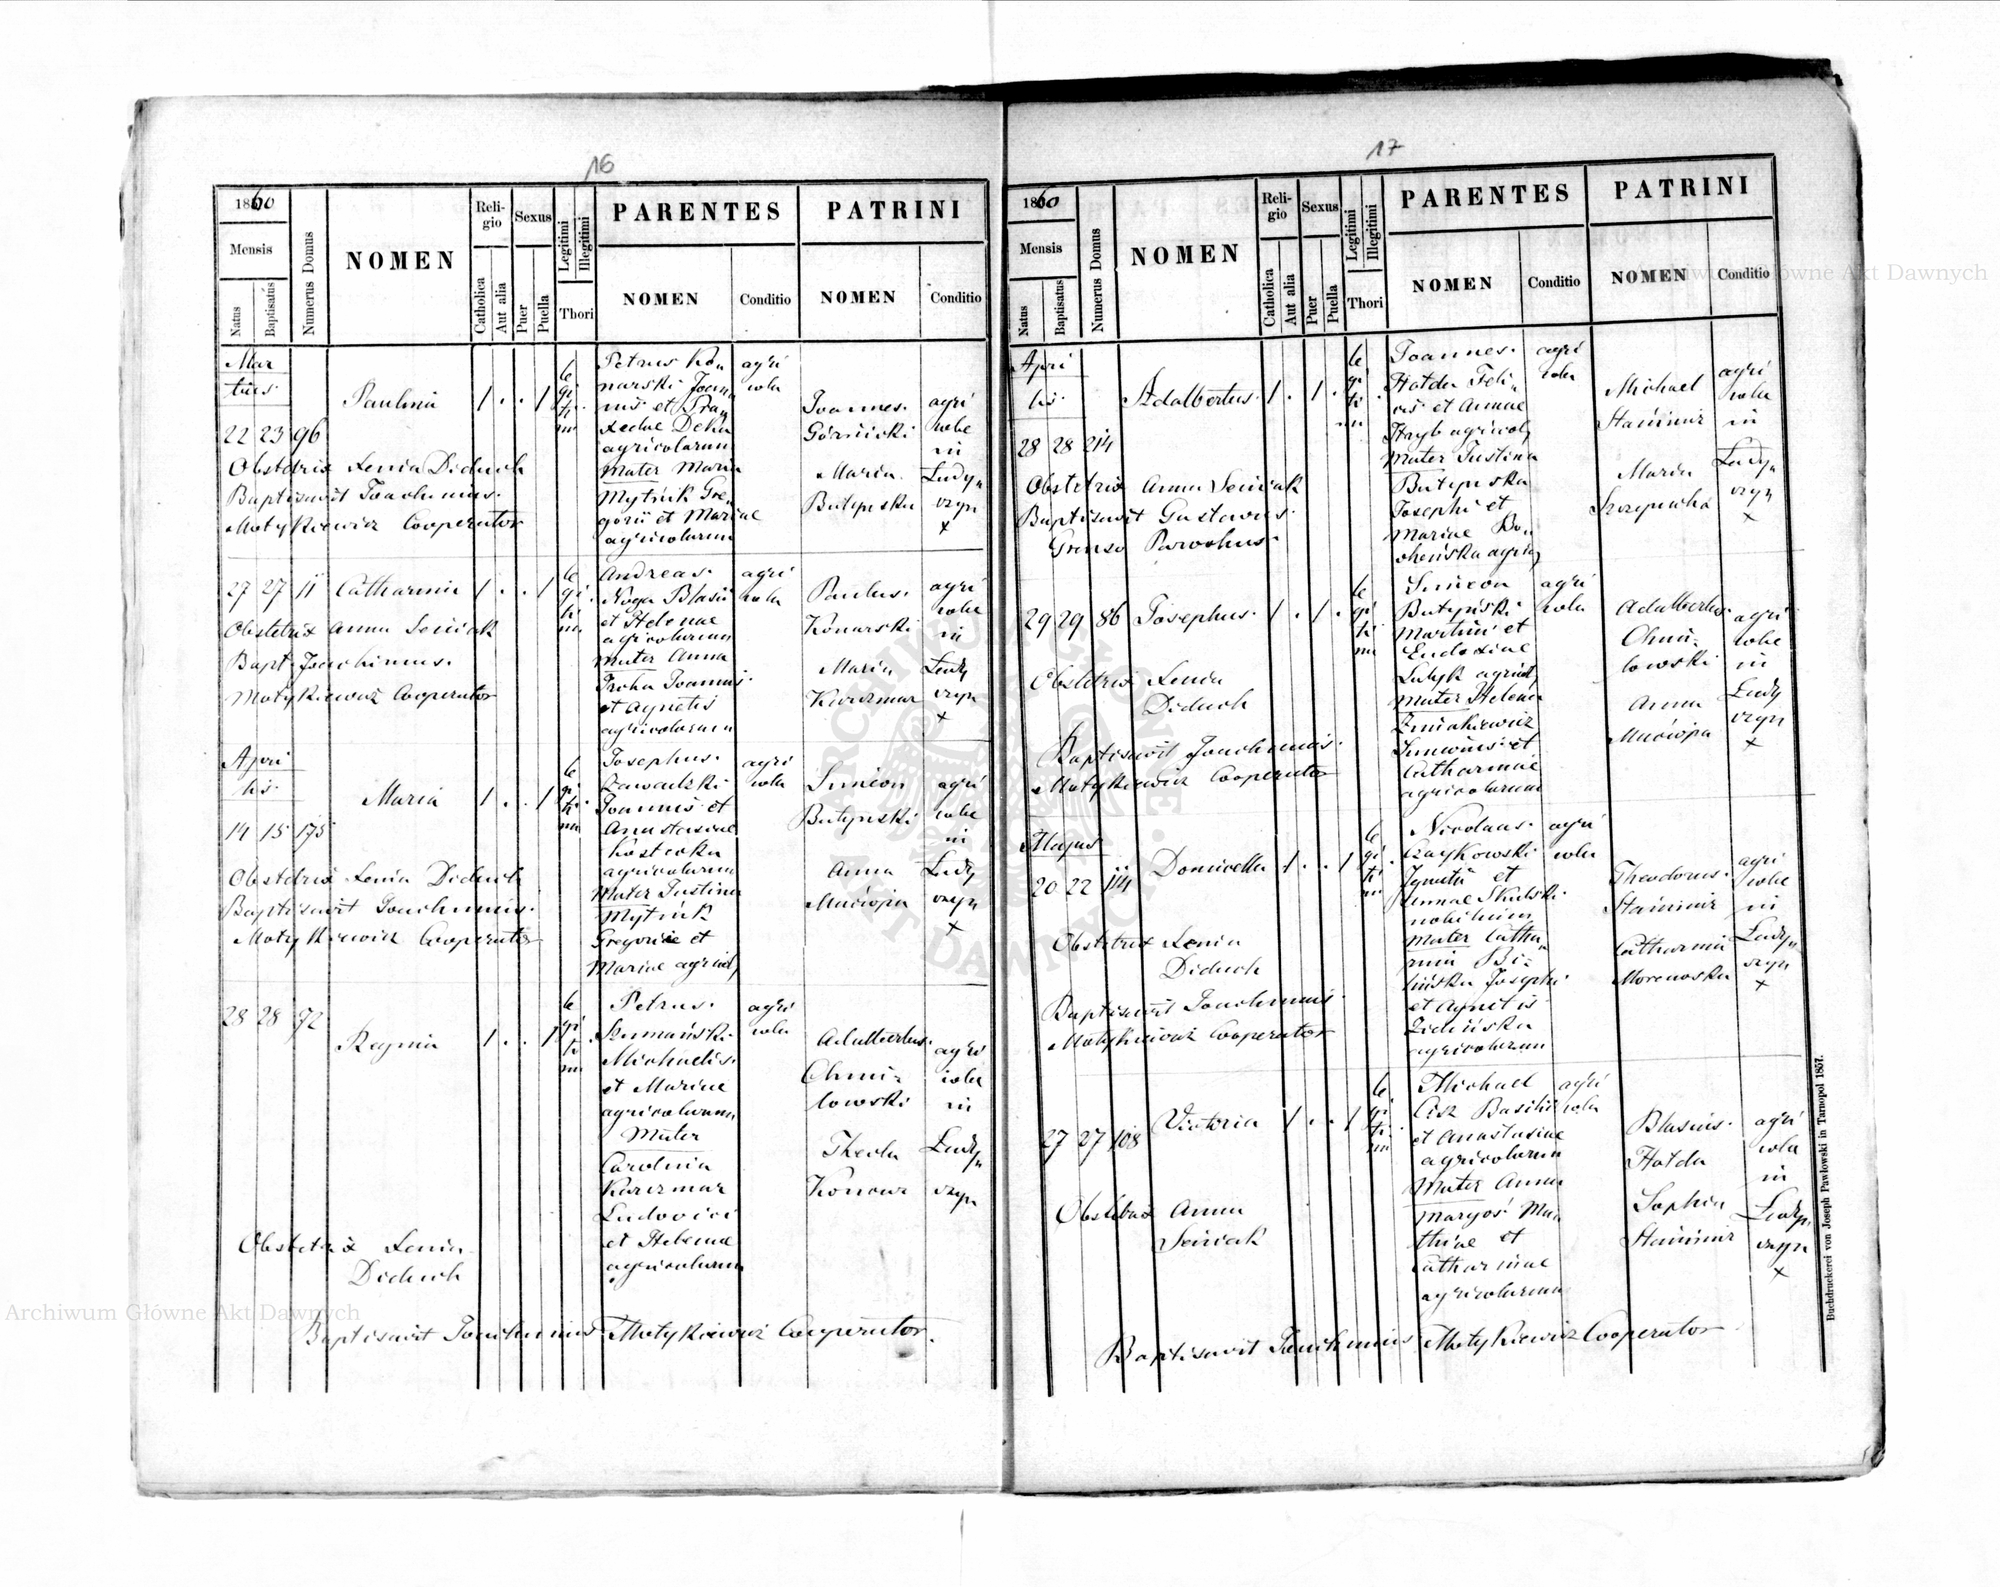 16
1860
Mensis
Natus
Baptisatus
Numerus Domus
NOMEN
Religio
Catholica
Aut alia
Sexus
Puer
Puella
Legitimi
Illegitimi
Thori
PARENTES
NOMEN
Conditio
PATRINI
NOMEN
Conditio
Mar
tius
22 23 96
Paulina
1 . . 1
le
gi
ti
mi
Petrus Ko
narski Joan
nis et Pra
xedae
agricolarum
Mater Maria
Mytnik Gre
gorii et Mariae
agricolarum
agri
cola
Joannes
Górnicki
Maria
Butynska
agri
colae
in
Łady
czyn
x
Obstetrix Xenia Diduch
Baptisavit Joachimus
Motykiewicz Cooperator
27 27 11 Catharina 1 . . 1
le
gi
ti
mi
Andreas
Noga Blasii
et Helenae
agricolarum
Mater Anna
Proha Joannis
et Agnetis
agricolarum
agri
cola
Paulus
Konarski
Maria
Karczmar
agri
colae
in
Łady
czyn
x
Obstetrix Anna Seńczak
Bapt. Joachimus
Motykiewicz Cooperator
Apri
lis
14 15 175
Maria
1 . . 1
le
gi
ti
mi
Josephus
Zawadzki
Joannis et
Anastasiae
Kosticka
agricolarum
Mater Justina
Mytnik
Gregorii et
Mariae agricol
agri
cola
Simeon
Butynski
Anna
Maciópa
agri
colae
in
Łady
czyn
x
Obstetrix Xenia Diduch
Baptisavit Joachimus
Motykiewicz Cooperator
28 28 72
Regina
1 . . 1
le
gi
ti
mi
Petrus
Szumański
Michaelis
et Mariae
agricolarum
Mater
Carolina
Karczmar
Ludovici
et Helenae
agricolarum
agri
cola
Adalbertus
Chmi-
lowski
Thecla
Konowa
agri
cola
in
Ładyn
czyn
Obstetrix Xenia
Diduch
Baptisavit Joachimus Motykiewicz Cooperator.
17
1860
Mensis
Natus
Baptisatus
Numerus Domus
NOMEN
Religio
Catholica
Aut alia
Sexus
Puer
Puella
Legitimi
Illegitimi
Thori
PARENTES
NOMEN
Conditio
PATRINI
NOMEN
Conditio
Apri
lis
28 28 214
Adalbertus
1 . 1 .
le
gi
ti
mi
Joannes
Hałda Feli
cis et Annae
Hryb agricol
Mater Justina
Butynska
Josephi et
Mariae Bo
cheńska agric
agri
cola
Michael
Stanimir
Maria
Szczepucha
agri
colae
in
Ładyn
czyn
x
Obstetrix Anna Seńczak
Baptisavit Gustavus
Parochus
29 29 86 Josephus 1 . 1 .
le
gi
ti
mi
Simeon
Butyński
Martini et
Eudoxiae
agricol
Mater Helena
Zmiakiewicz
Simeonis et
Catharinae
agricolarum
agri
cola
Adalbertus
Chmi-
lowski
Anna
Maciópa
agri
colae
in
Ładyn
czyn
x
Obstetrix Xenia
Diduch
Baptisavit Joachimus
Motykiewicz Cooperator
Majus
20 22 114 Domicella 1 . . 1
le
gi
ti
mi
Nicolaus
Czaykowski
Ignatii et
Annae Skulski
nobilium
Mater Catha
rina Bi-
lińska Josephi
et Agnetis
Zielińska
agricolarum
agri
cola
Theodorus
Stanimir
Catharina
Morawska
agri
colae
in
Ładyn
czyn
x
Obstetrix Xenia
Diduch
Baptisavit Joachimus
Motykiewicz Cooperator
27 27 108
Victoria
1 . . 1
le
gi
ti
mi
Michael
Cisz Basilii
et Anastasiae
agricolarum
Mater Anna
Maryoś Ma
thiae et
Catharinae
agricolarum
agri
cola
Blasius
Hałda
Sophia
Stanimir
agri
cola
in
Ładyn
czyn
x
Obstetrix Anna
Seńczak
Baptisavit Joachimus Motykiewicz Cooperator
Buchdruckerei von Joseph Pawłowski in Tarnopol 1857.
Archiwum Główne Akt Dawnych
Archiwum Główne Akt Dawnych
ARCHIWUM GŁÓWNE AKT DAWNYCH